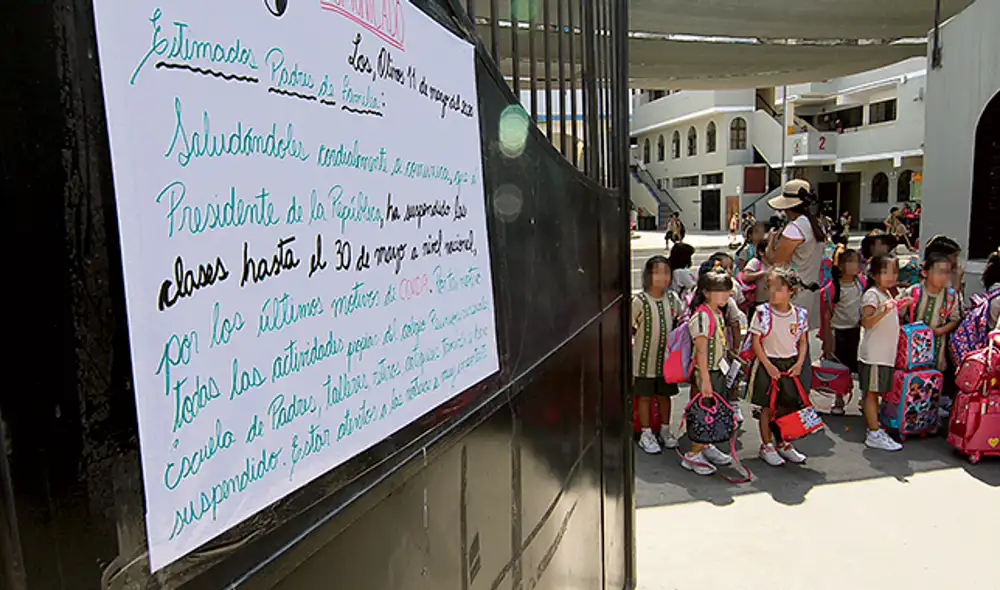 COMUNICADO
Los, Olivos 11 de marzo del 2020
Estimados Padres de familia:
Saludándoles cordialmente a comunicar, que el
Presidente de la República, ha suspendido las
clases hasta el 30 de marzo a nivel nacional,
por los últimos motivos de COVID. Por tal motivo
todas las actividades propias del colegio
Escuela de Padres, talleres, retiros
suspendido. Estar atentos a las noticias
2